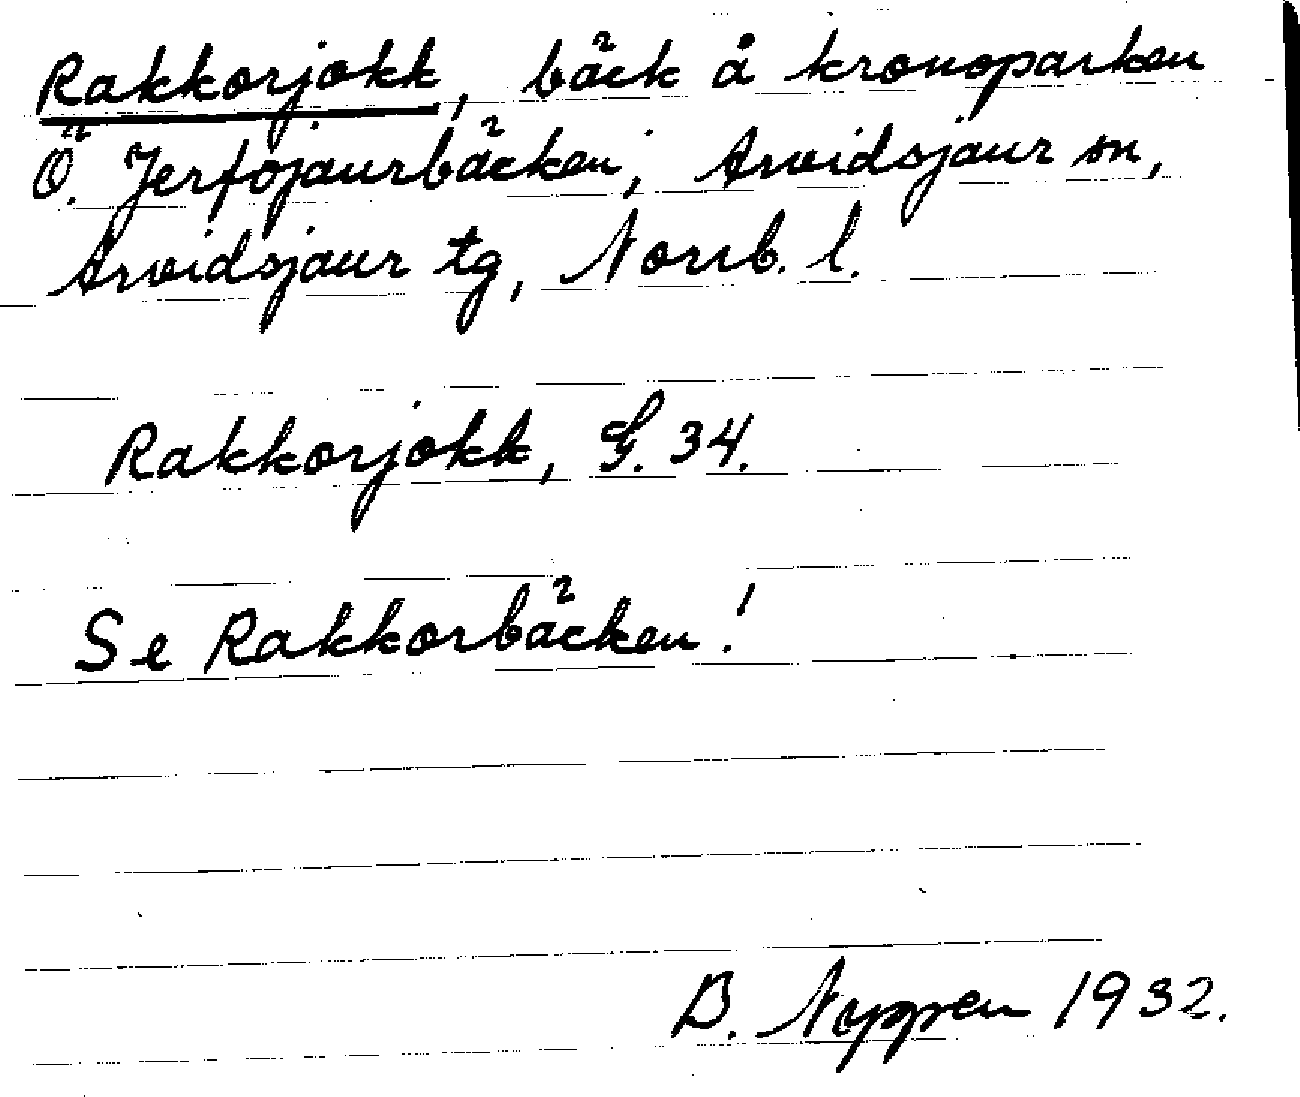 Rakkorjokk, bäck å kronoparken
Ö. Jerfojaurbäcken, Arvidsjaur sn,
Arvidsjaur tg, Norrb. l.
Rakkorjokk, G. 34.
Se Rakkorbäcken!
B. Nyppen 1932.